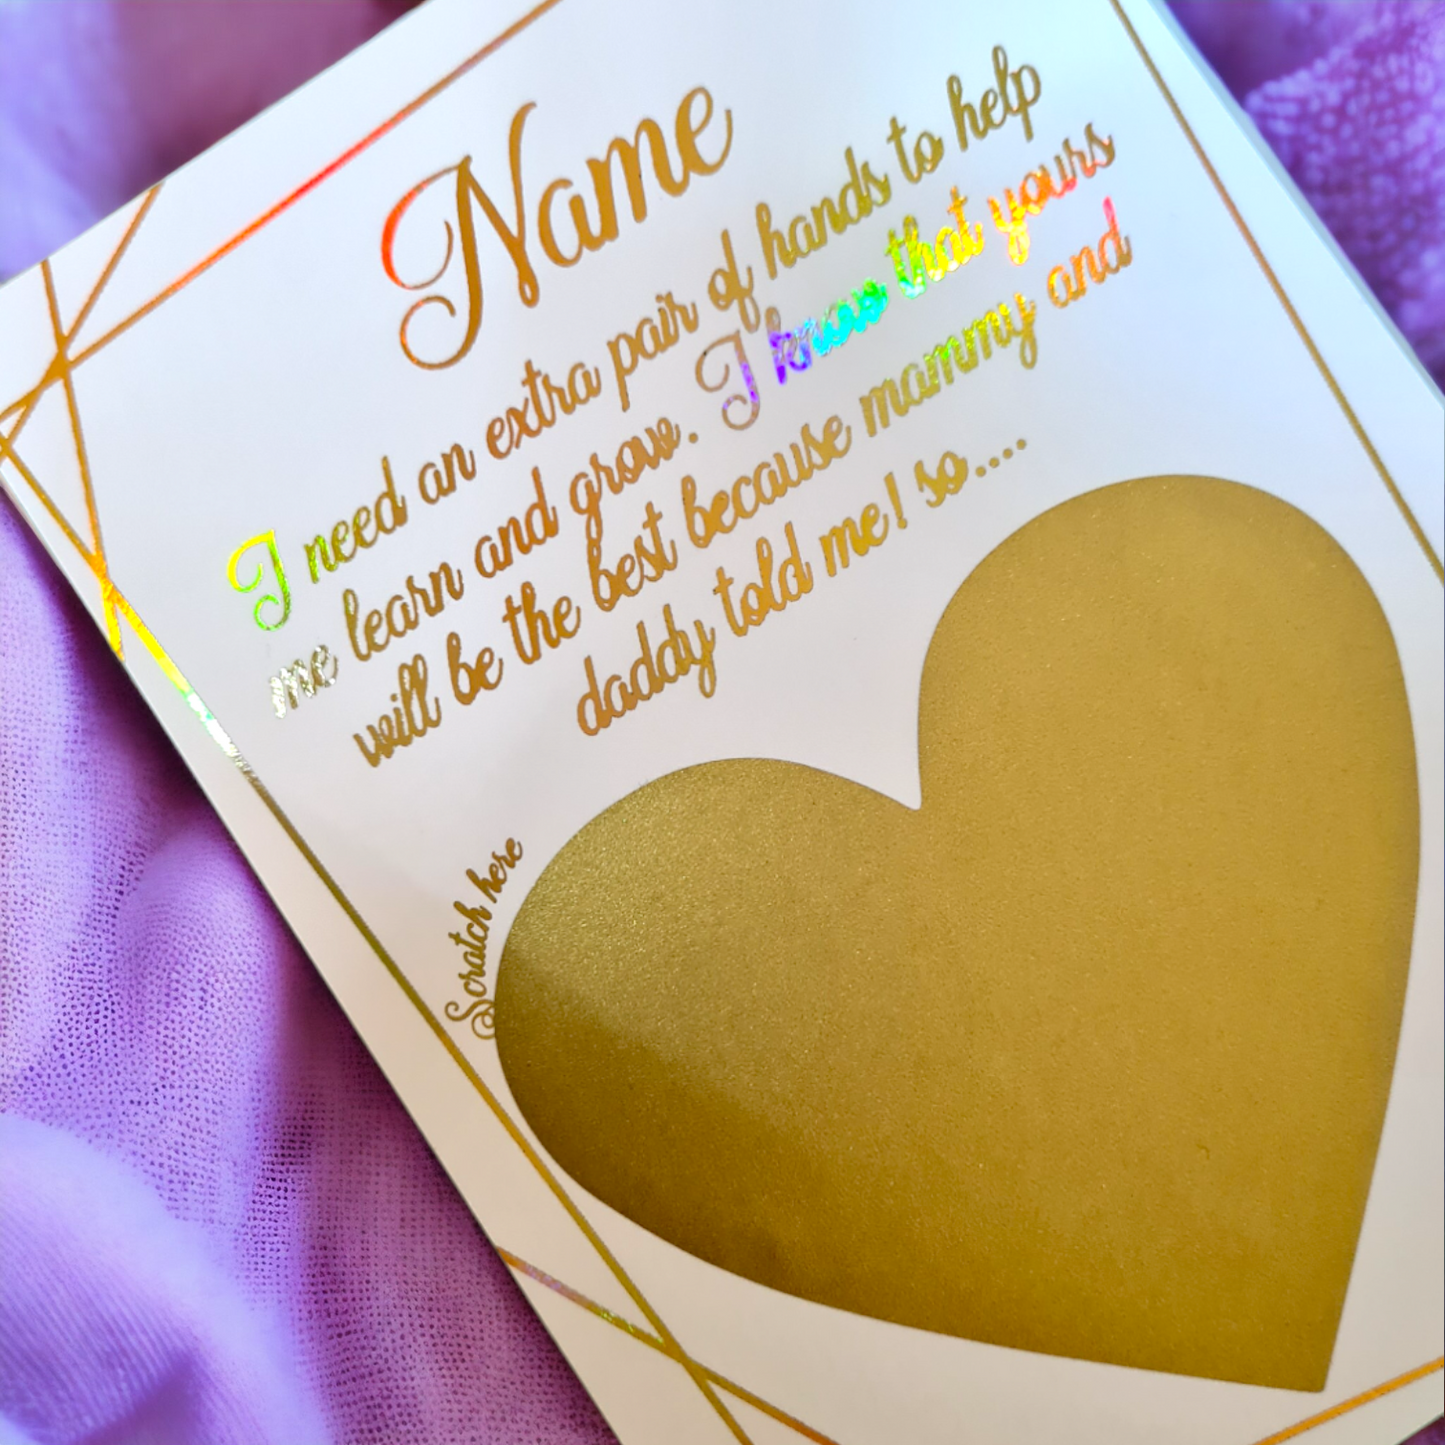 Name
I need an extra pair of hands to help
me learn and grow. I know that yours
will be the best because mammy and
daddy told me! so....
Scratch here